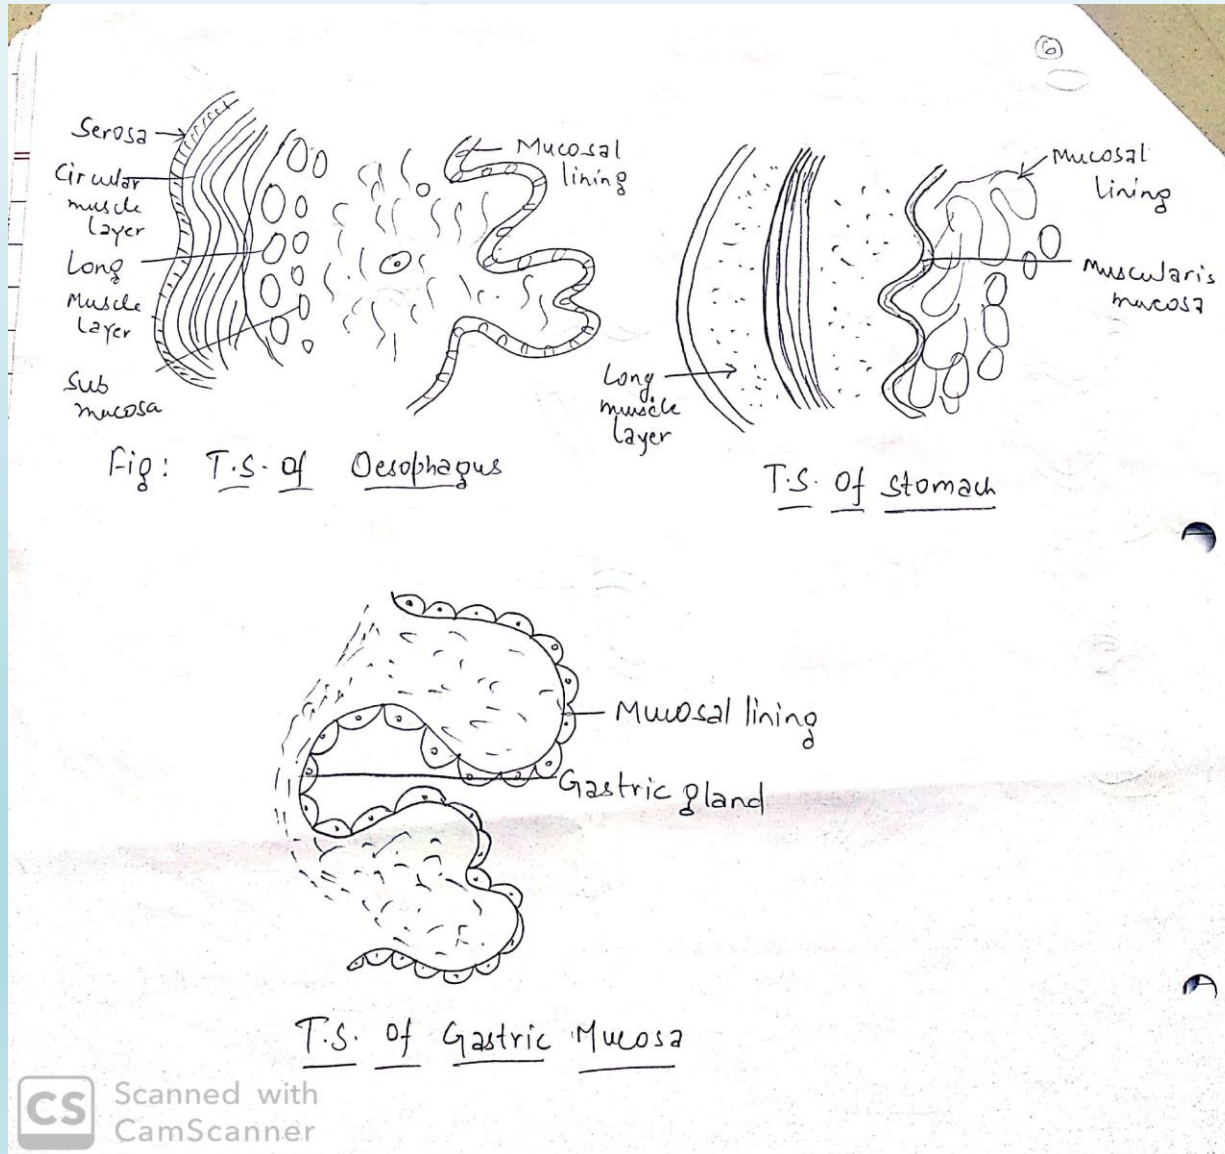 6
Serosa
Circular
muscle
layer
Long
Muscle
Layer
Sub
mucosa
Mucosal
lining
Fig: T.S. of Oesophagus
Mucosal
lining
Muscularis
mucosa
Long
muscle
layer
T.S. Of stomach
Mucosal lining
Gastric gland
T.S. Of Gastric Mucosa
CS
Scanned with
CamScanner